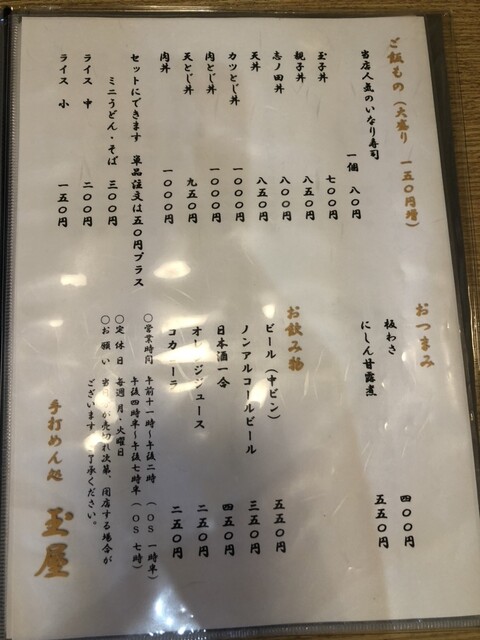 ご飯もの（大盛り　一五〇円増）
当店人気のいなり寿司
一個　八〇円
玉子丼　七〇〇円
親子丼　八五〇円
志ノ田丼　八〇〇円
天丼　八五〇円
カツとじ丼　一〇〇〇円
肉とじ丼　一〇〇〇円
天とじ丼　九五〇円
肉丼　一〇〇〇円
セットにできます　単品注文は五〇円プラス
ミニうどん・そば　三〇〇円
ライス　中　二〇〇円
ライス　小　一五〇円
おつまみ
板わさ　四〇〇円
にしん甘露煮　五五〇円
お飲み物
ビール（中ビン）　五五〇円
ノンアルコールビール　三五〇円
日本酒一合　四五〇円
オレンジジュース　二五〇円
コカコーラ　二五〇円
〇営業時間　午前十一時〜午後二時　（OS　一時半）
午後四時半〜午後七時半　（OS　七時）
〇定休日　毎週月・火曜日
〇お願い　当日　が売切れ次第、閉店する場合が
ございます　了承ください。
手打めん処　玉屋